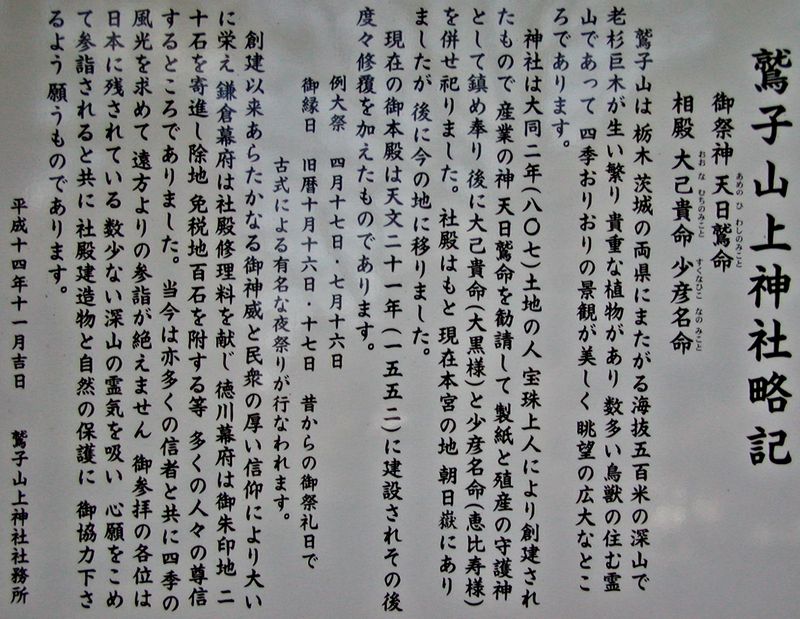 鷲子山上神社略記
御祭神 天日鷲命
あめの ひ わしのみこと
相殿 大己貴命 少彦名命
おお な むちのみこと すくなひこ なの みこと
鷲子山は 栃木 茨城の両県にまたがる海抜五百米の深山で
老杉巨木が生い繁り 貴重な植物があり 数多い鳥獣の住む霊
山であって 四季おりおりの景観が美しく 眺望の広大なとこ
ろであります。
神社は大同二年(八〇七)土地の人 宝珠上人により創建され
たもので 産業の神 天日鷲命を勧請して 製紙と殖産の守護神
として鎮め奉り 後に大己貴命(大黒様)と少彦名命(恵比寿様)
を併せ祀りました。社殿はもと 現在本宮の地 朝日嶽にあり
ましたが 後に今の地に移りました。
現在の御本殿は天文二十一年(一五五二)に建設されその後
度々修覆を加えたものであります。
例大祭 四月十七日・七月十六日
御縁日 旧暦十月十六日・十七日 昔からの御祭礼日で
古式による有名な夜祭りが行なわれます。
創建以来あらたかなる御神威と民衆の厚い信仰により大い
に栄え 鎌倉幕府は社殿修理料を献じ 徳川幕府は御朱印地 二
十石を寄進し除地 免税地百石を附する等 多くの人々の尊信
するところでありました。当今は亦多くの信者と共に四季の
風光を求めて 遠方よりの参詣が絶えません 御参拝の各位は
日本に残されている 数少ない深山の霊気を吸い 心願をこめ
て参詣されると共に 社殿建造物と自然の保護に 御協力下さ
るよう 願うものであります。
平成十四年十一月吉日 鷲子山上神社社務所